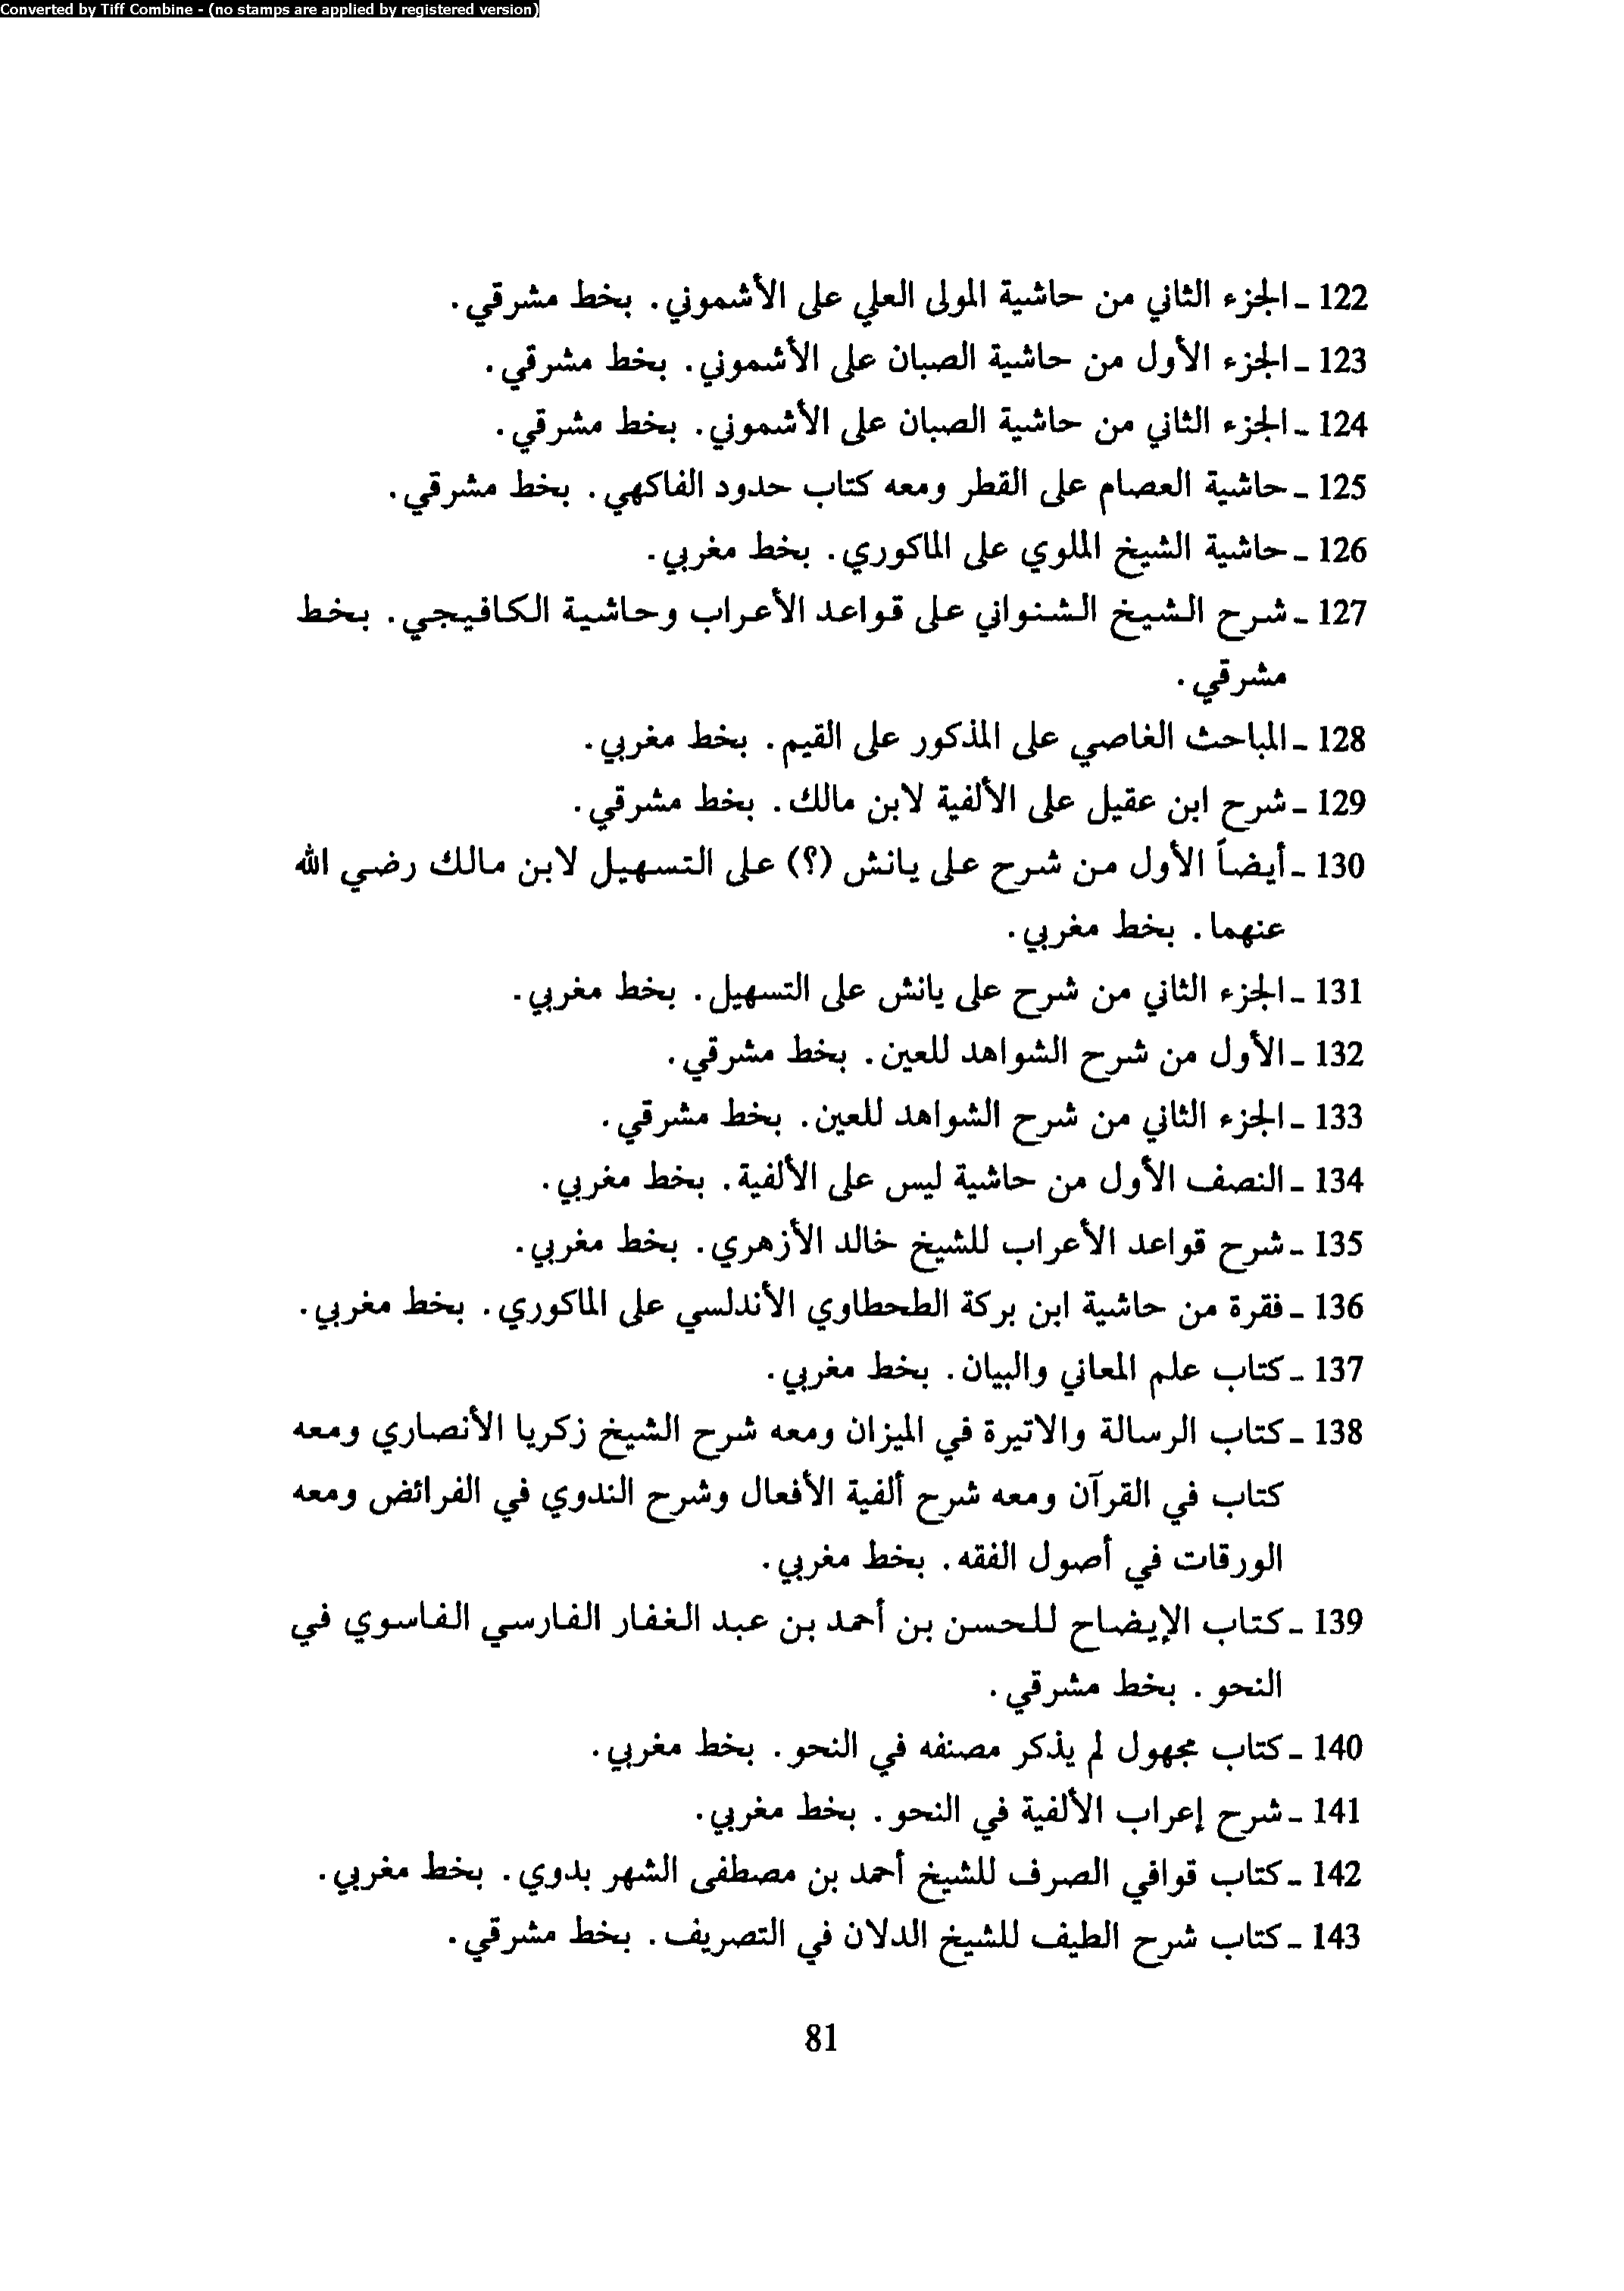 Converted by Tiff Combine - (no stamps are applied by registered version)
122 ـ الجزء الثاني من حاشية المولى العلي على الأشموني. بخط مشرقي.
123 ـ الجزء الأول من حاشية الصبان على الأشموني. بخط مشرقي.
124 ـ الجزء الثاني من حاشية الصبان على الأشموني. بخط مشرقي.
125 ـ حاشية العصام على القطر ومعه كتاب حدود الفاكهي. بخط مشرقي.
126 ـ حاشية الشيخ الملوي على الماكوري. بخط مغربي.
127 ـ شرح الشيخ الشنواني على قواعد الأعراب وحاشية الكافيجي. بخط
مشرقي.
128 ـ المباحث الغاصي على المذكور على القيم. بخط مغربي.
129 ـ شرح ابن عقيل على الألفية لابن مالك. بخط مشرقي.
130 ـ أيضاً الأول من شرح على يانش (؟) على التسهيل لابن مالك رضي الله
عنهما. بخط مغربي.
131 ـ الجزء الثاني من شرح على يانش على التسهيل. بخط مغربي.
132 ـ الأول من شرح الشواهد للعين. بخط مشرقي.
133 ـ الجزء الثاني من شرح الشواهد للعين. بخط مشرقي.
134 ـ النصف الأول من حاشية ليس على الألفية. بخط مغربي.
135 ـ شرح قواعد الأعراب للشيخ خالد الأزهري. بخط مغربي.
136 ـ فقرة من حاشية ابن بركة الطحطاوي الأندلسي على الماكوري. بخط مغربي.
137 ـ كتاب علم المعاني والبيان. بخط مغربي.
138 ـ كتاب الرسالة والاتيرة في الميزان ومعه شرح الشيخ زكريا الأنصاري ومعه
كتاب في القرآن ومعه شرح ألفية الأفعال وشرح الندوي في الفرائض ومعه
الورقات في أصول الفقه. بخط مغربي.
139 ـ كتاب الإيضاح للحسن بن أحمد بن عبد الغفار الفارسي الفاسوي في
النحو. بخط مشرقي.
140 ـ كتاب مجهول لم يذكر مصنفه في النحو. بخط مغربي.
141 ـ شرح إعراب الألفية في النحو. بخط مغربي.
142 ـ كتاب قوافي الصرف للشيخ أحمد بن مصطفى الشهر بدوي. بخط مغربي.
143 ـ كتاب شرح الطيف للشيخ الدلان في التصريف. بخط مشرقي.
81